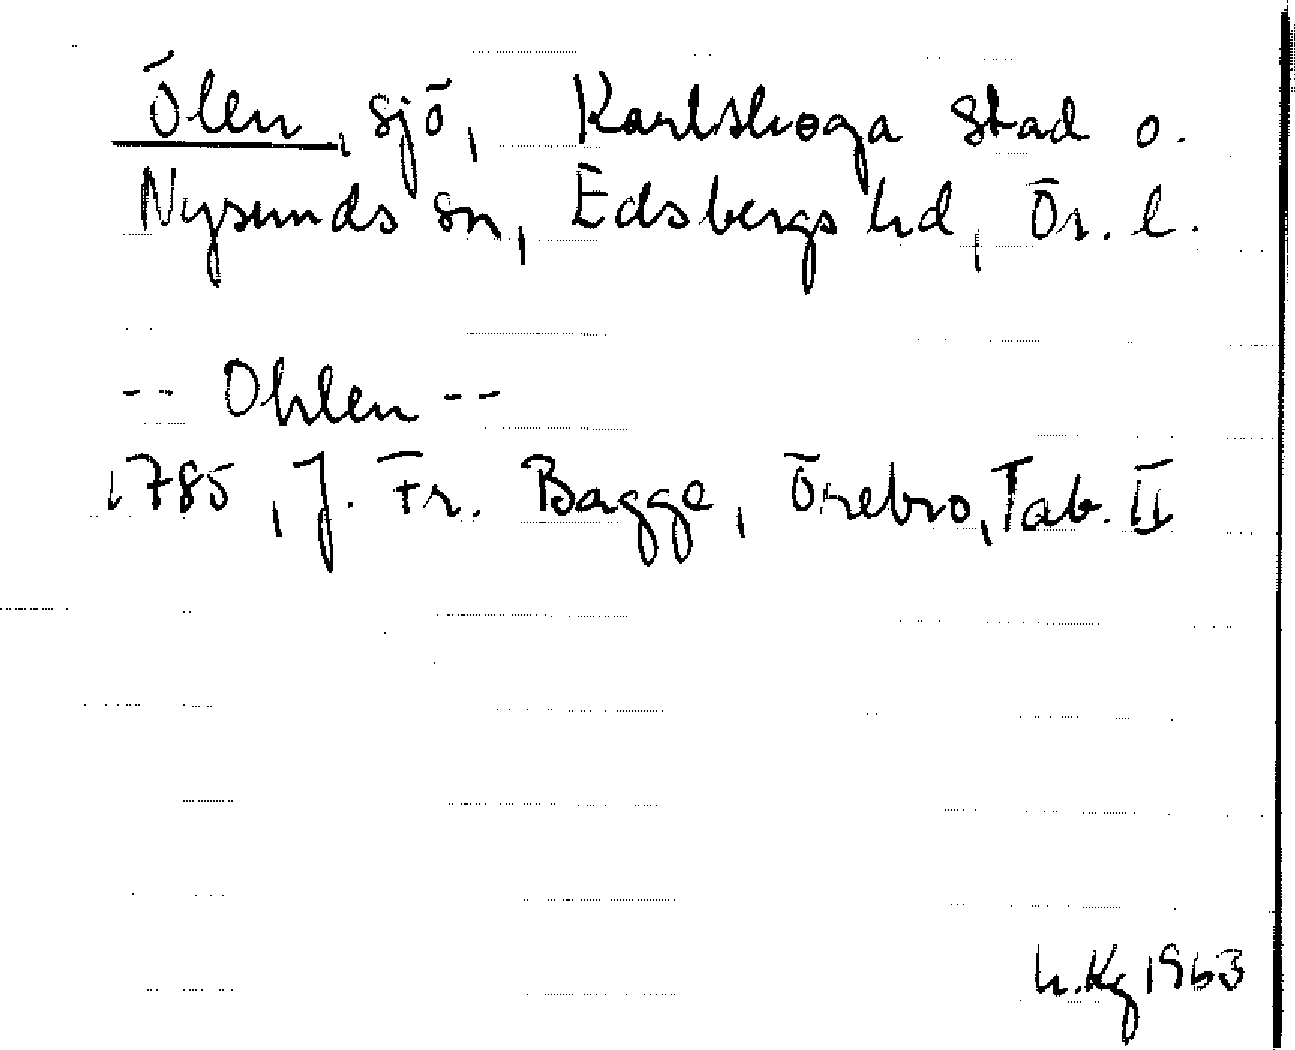 Ölen, sjö, Karlskoga stad o.
Nysunds sn, Edsbergs hd, Ör. l.
-- Ohlen --
1785, J. Fr. Bagge, Örebro, Tab. II
h.Kg 1963